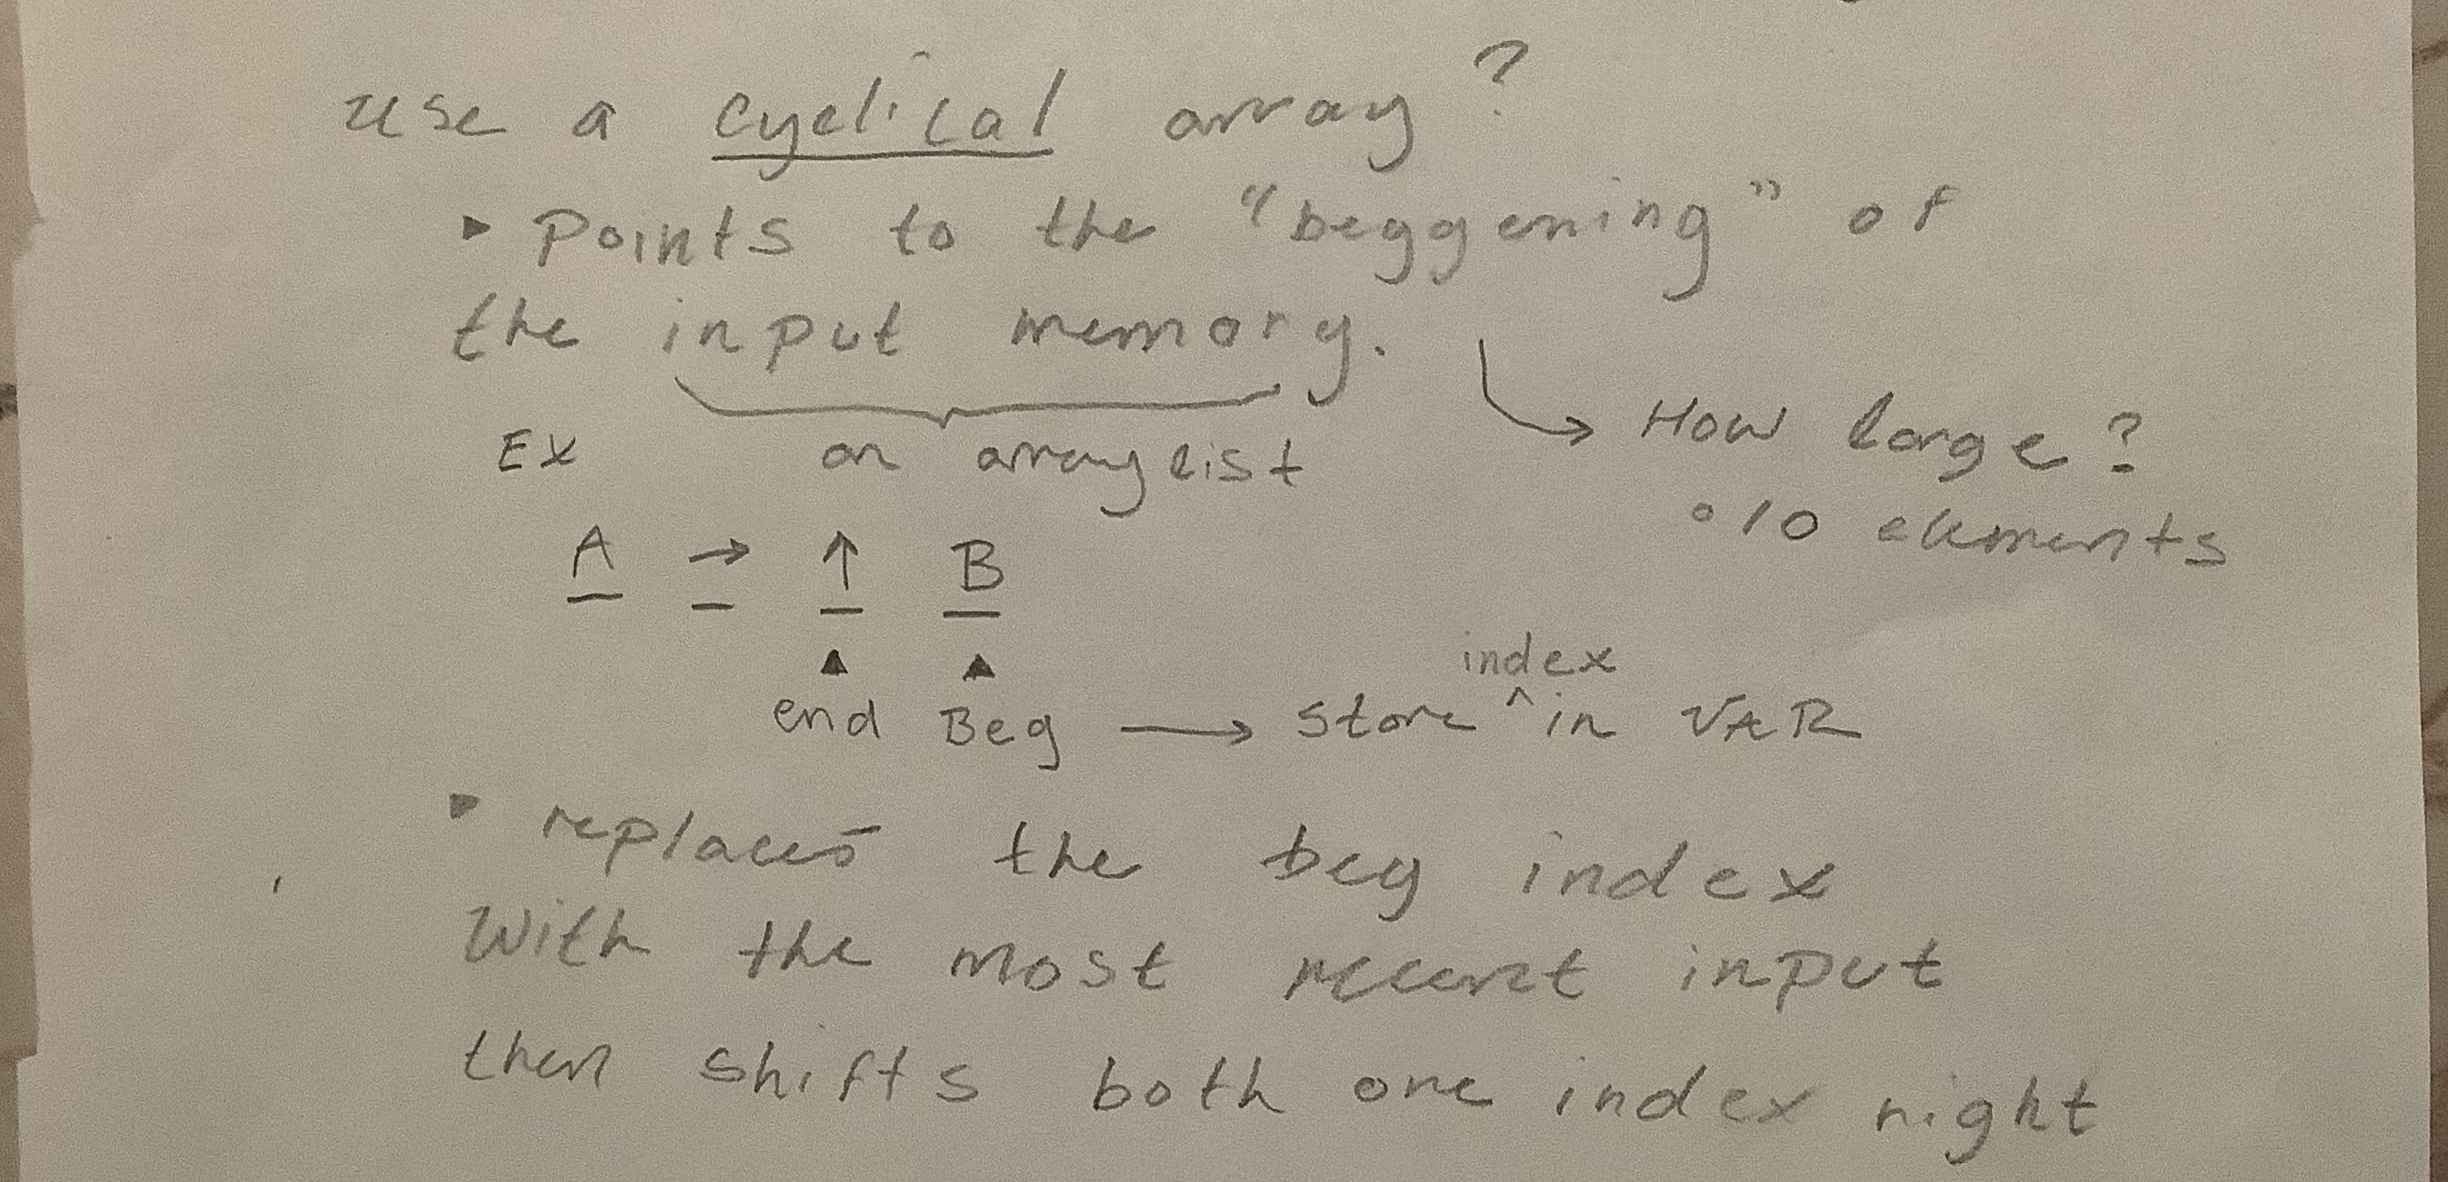 use a cyclical array?
▸ Points to the "beggening" of
the input memory.
→ How large?
Ex an arraylist
∘ 10 elements
A → ↑ B
▲ ▲
index
end Beg → store ^ in VAR
▸ replaces the beg index
With the most recent input
then shifts both one index right